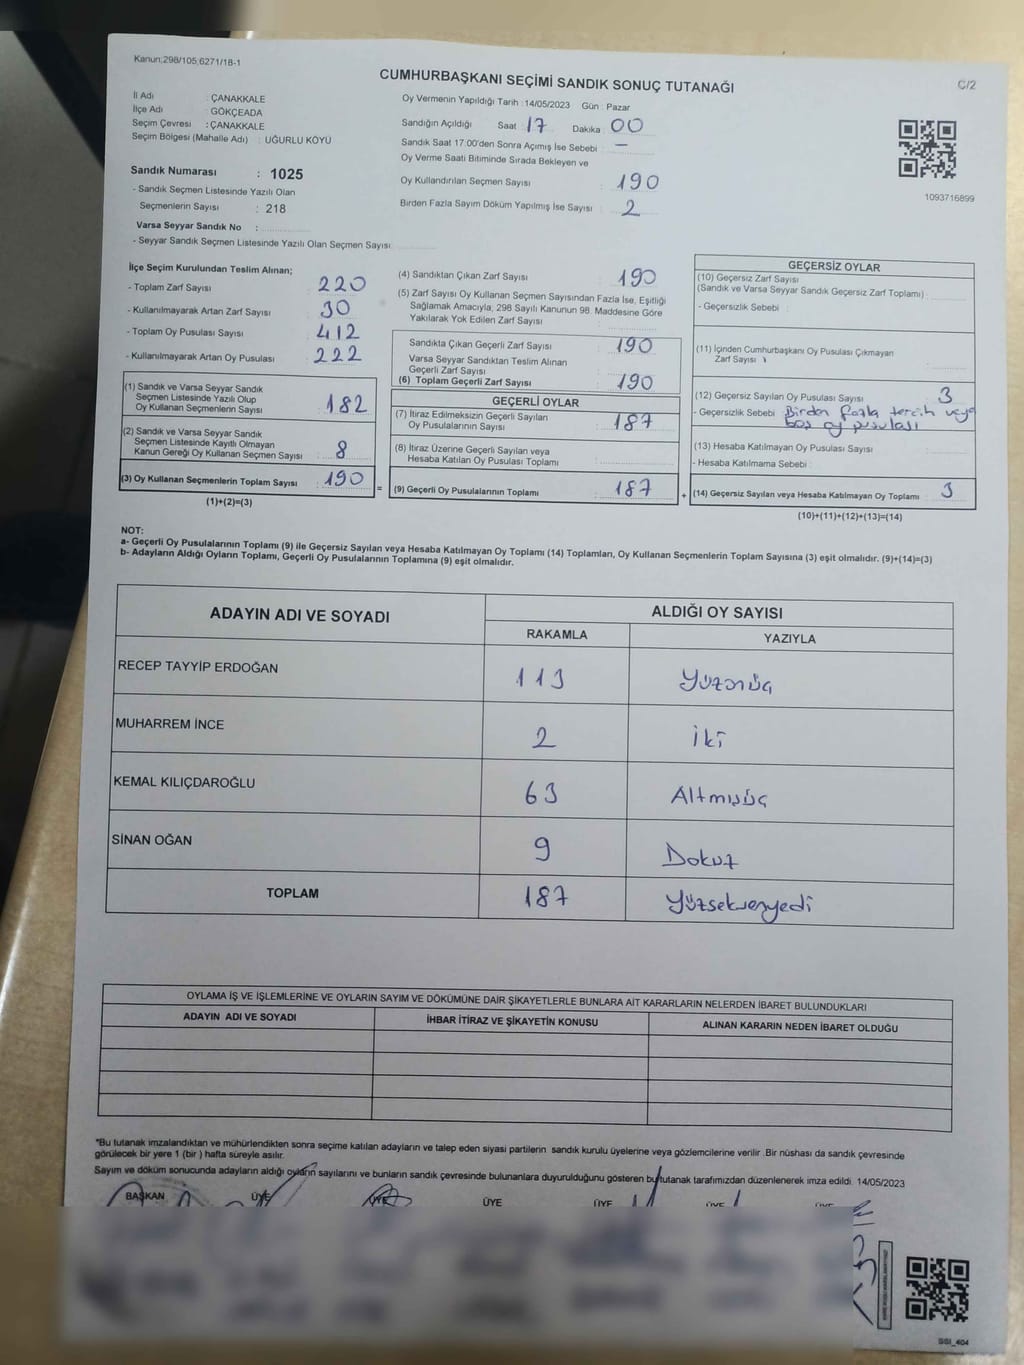 Kanun:298/105,6271/18-1
CUMHURBAŞKANI SEÇİMİ SANDIK SONUÇ TUTANAĞI
C/2
İl Adı : ÇANAKKALE
İlçe Adı : GÖKÇEADA
Seçim Çevresi : ÇANAKKALE
Seçim Bölgesi (Mahalle Adı) : UĞURLU KÖYÜ
Sandık Numarası : 1025
- Sandık Seçmen Listesinde Yazılı Olan
Seçmenlerin Sayısı : 218
Varsa Seyyar Sandık No :
- Seyyar Sandık Seçmen Listesinde Yazılı Olan Seçmen Sayısı
Oy Vermenin Yapıldığı Tarih : 14/05/2023 Gün : Pazar
Sandığın Açıldığı Saat 17 Dakika 00
Sandık Saat 17:00'den Sonra Açımış İse Sebebi : —
Oy Verme Saati Bitiminde Sırada Bekleyen ve
Oy Kullandırılan Seçmen Sayısı : 190
Birden Fazla Sayım Döküm Yapılmış İse Sayısı : 2
1093716899
İlçe Seçim Kurulundan Teslim Alınan;
- Toplam Zarf Sayısı : 220
- Kullanılmayarak Artan Zarf Sayısı : 30
- Toplam Oy Pusulası Sayısı : 412
- Kullanılmayarak Artan Oy Pusulası : 222
(1) Sandık ve Varsa Seyyar Sandık
Seçmen Listesinde Yazılı Olup
Oy Kullanan Seçmenlerin Sayısı : 182
(2) Sandık ve Varsa Seyyar Sandık
Seçmen Listesinde Kayıtlı Olmayan
Kanun Gereği Oy Kullanan Seçmen Sayısı : 8
(3) Oy Kullanan Seçmenlerin Toplam Sayısı : 190
(1)+(2)=(3)
(4) Sandıktan Çıkan Zarf Sayısı : 190
(5) Zarf Sayısı Oy Kullanan Seçmen Sayısından Fazla İse, Eşitliği
Sağlamak Amacıyla, 298 Sayılı Kanunun 98. Maddesine Göre
Yakılarak Yok Edilen Zarf Sayısı :
Sandıkta Çıkan Geçerli Zarf Sayısı : 190
Varsa Seyyar Sandıktan Teslim Alınan
Geçerli Zarf Sayısı :
(6) Toplam Geçerli Zarf Sayısı : 190
GEÇERLİ OYLAR
(7) İtiraz Edilmeksizin Geçerli Sayılan
Oy Pusulalarının Sayısı : 187
(8) İtiraz Üzerine Geçerli Sayılan veya
Hesaba Katılan Oy Pusulası Toplamı :
= (9) Geçerli Oy Pusulalarının Toplamı : 187
GEÇERSİZ OYLAR
(10) Geçersiz Zarf Sayısı
(Sandık ve Varsa Seyyar Sandık Geçersiz Zarf Toplamı) :
- Geçersizlik Sebebi :
(11) İçinden Cumhurbaşkanı Oy Pusulası Çıkmayan
Zarf Sayısı :
(12) Geçersiz Sayılan Oy Pusulası Sayısı : 3
- Geçersizlik Sebebi : Birden fazla tercih veya
boş oy pusulası
(13) Hesaba Katılmayan Oy Pusulası Sayısı :
- Hesaba Katılmama Sebebi :
+ (14) Geçersiz Sayılan veya Hesaba Katılmayan Oy Toplamı : 3
(10)+(11)+(12)+(13)=(14)
NOT:
a- Geçerli Oy Pusulalarının Toplamı (9) ile Geçersiz Sayılan veya Hesaba Katılmayan Oy Toplamı (14) Toplamları, Oy Kullanan Seçmenlerin Toplam Sayısına (3) eşit olmalıdır. (9)+(14)=(3)
b- Adayların Aldığı Oyların Toplamı, Geçerli Oy Pusulalarının Toplamına (9) eşit olmalıdır.
ADAYIN ADI VE SOYADI
ALDIĞI OY SAYISI
RAKAMLA YAZIYLA
RECEP TAYYİP ERDOĞAN 113 Yüzonüç
MUHARREM İNCE 2 İki
KEMAL KILIÇDAROĞLU 63 Altmışüç
SİNAN OĞAN 9 Dokuz
TOPLAM 187 Yüzseksenyedi
OYLAMA İŞ VE İŞLEMLERİNE VE OYLARIN SAYIM VE DÖKÜMÜNE DAİR ŞİKAYETLERLE BUNLARA AİT KARARLARIN NELERDEN İBARET BULUNDUKLARI
ADAYIN ADI VE SOYADI İHBAR İTİRAZ VE ŞİKAYETİN KONUSU ALINAN KARARIN NEDEN İBARET OLDUĞU
*Bu tutanak imzalandıktan ve mühürlendikten sonra seçime katılan adayların ve talep eden siyasi partilerin sandık kurulu üyelerine veya gözlemcilerine verilir .Bir nüshası da sandık çevresinde
görülecek bir yere 1 (bir ) hafta süreyle asılır.
Sayım ve döküm sonucunda adayların aldığı oyların sayılarını ve bunların sandık çevresinde bulunanlara duyurulduğunu gösteren bu tutanak tarafımızdan düzenlenerek imza edildi. 14/05/2023
BAŞKAN ÜYE ÜYE ÜYE ÜYE ÜYE ÜYE
SSI_404